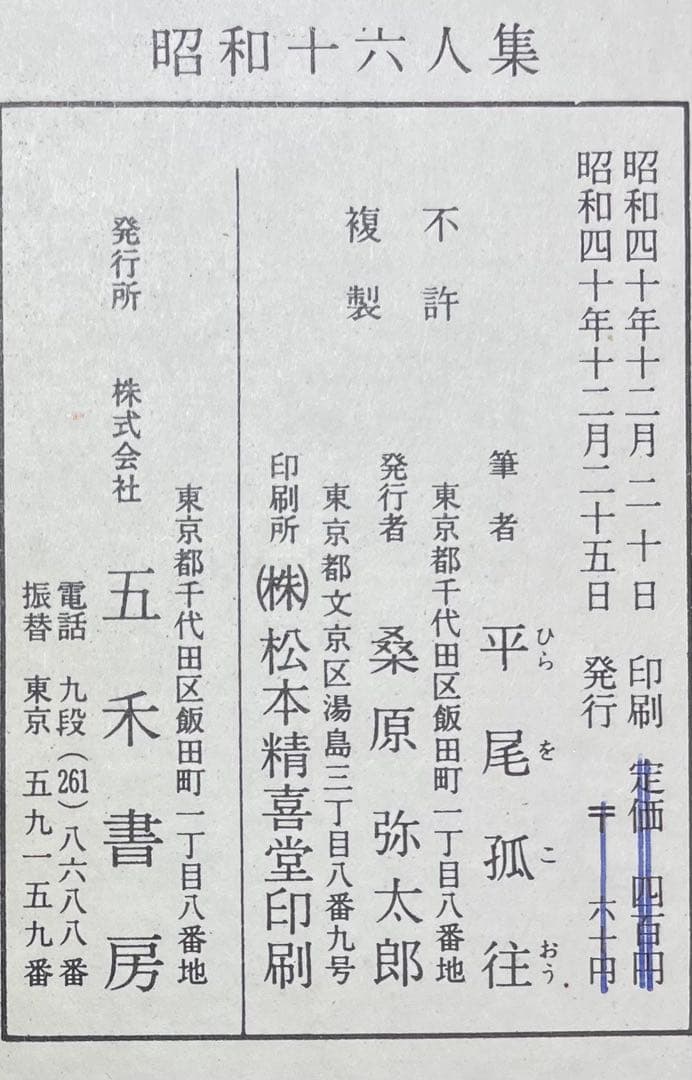 昭和十六人集
昭和四十年十二月二十日 印刷 定価 四百円
昭和四十年十二月二十五日 発行 〒 六十円
不許
複製
筆者 平尾孤往
ひらをこおう
東京都千代田区飯田町一丁目八番地
発行者 桑原弥太郎
東京都文京区湯島三丁目八番九号
印刷所 ㈱松本精喜堂印刷
東京都千代田区飯田町一丁目八番地
発行所 株式会社 五禾書房
電話 九段(261)八六八八番
振替 東京 五九一五九番